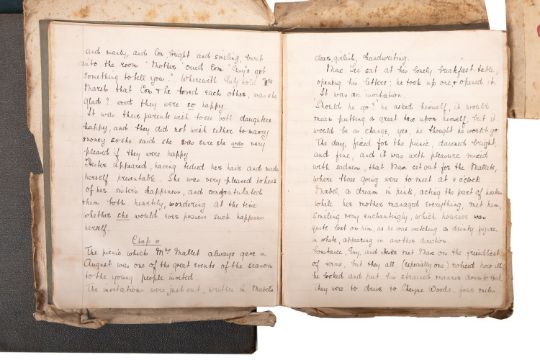 and merry, and Con bright and smiling, burst
into the room "Mother" cried Con "Guy's got
something to tell you". Whereupon Guy told Mrs
Marsh that Con & he loved each other, was she
glad? and they were so happy.
It was their parents wish to see both daughters
happy, and they did not wish either to marry
money so she said she was sure she was very
pleased if they were happy
appeared, having tidied her hair and made
herself presentable. She was very pleased to hear
of her sisters happiness, and congratulated
them both heartily, wondering at the time
whether she would ever possess such happiness
herself.
Chap II
The picnic which Mrs Mallet always gave in
August was one of the great events of the season
to the young people invited.
The invitations were just out, written in Mabels
clear, girlish, handwriting.
Max sat at his lonely breakfast table,
opening his letters; he took up one & opened it
It was an invitation
Should he go? he asked himself, it would
mean putting a great upon himself, but it
would be a change, yes, he thought he would go.
The day, fixed for the picnic, dawned bright,
and fine, and it was with pleasure mixed
with sadness, that Max set out for the Mallets,
where those going were to meet at 2 oclock
Mabel, a dream in pink, acting the part of hostess
while her mother managed everything, met him,
smiling very enchantingly, which however was
quite lost on him, as he was watching a dainty figure,
in white, appearing in another direction
Constance, Guy, and
of terms, but they all noticed how ill
he looked and put his strained manner down to that
They were to drive to Cheyne Woods, four miles